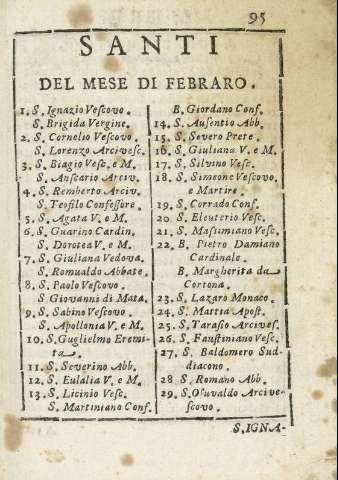 95
SANTI
DEL MESE DI FEBRARO.
1. S. Ignazio Vescovo.
S. Brigida Vergine.
2. S. Cornelio Vescovo.
S. Lorenzo Arcivesc.
3. S. Biagio Vesc. e M.
S. Anscario Arciv.
4. S. Remberto Arciv.
S. Teofilo Confessore.
5. S. Agata V. e M.
6. S. Guarino Cardin.
S. Dorotea V. e M.
7. S. Giuliana Vedova.
S. Romualdo Abbate.
8. S. Paolo Vescovo.
S Giovanni di Mata.
9. S. Sabino Vescovo.
S. Apollonia V. e M.
10. S. Guglielmo Eremi-
ta.
11. S. Severino Abb.
12. S. Eulalia V. e M.
13. S. Licinio Vesc.
S. Martiniano Conf.
B. Giordano Conf.
14. S. Ausentio Abb.
15. S. Severo Prete.
16. S. Giuliana V. e M.
17. S. Silvino Vesc.
18. S. Simeone Vescovo
e Martire.
19. S. Corrado Conf.
20. S. Eleuterio Vesc.
21. S. Massimiano Vesc.
22. B. Pietro Damiano
Cardinale.
B. Margherita da
Cortona.
23. S. Lazaro Monaco.
24. S. Mattia Apost.
25. S. Tarasio Arcives.
26. S. Faustiniano Vesc.
27. S. Baldomero Sud-
diacono.
28 S. Romano Abb.
29. S. Osuvaldo Arcive-
scovo.
S. IGNA-